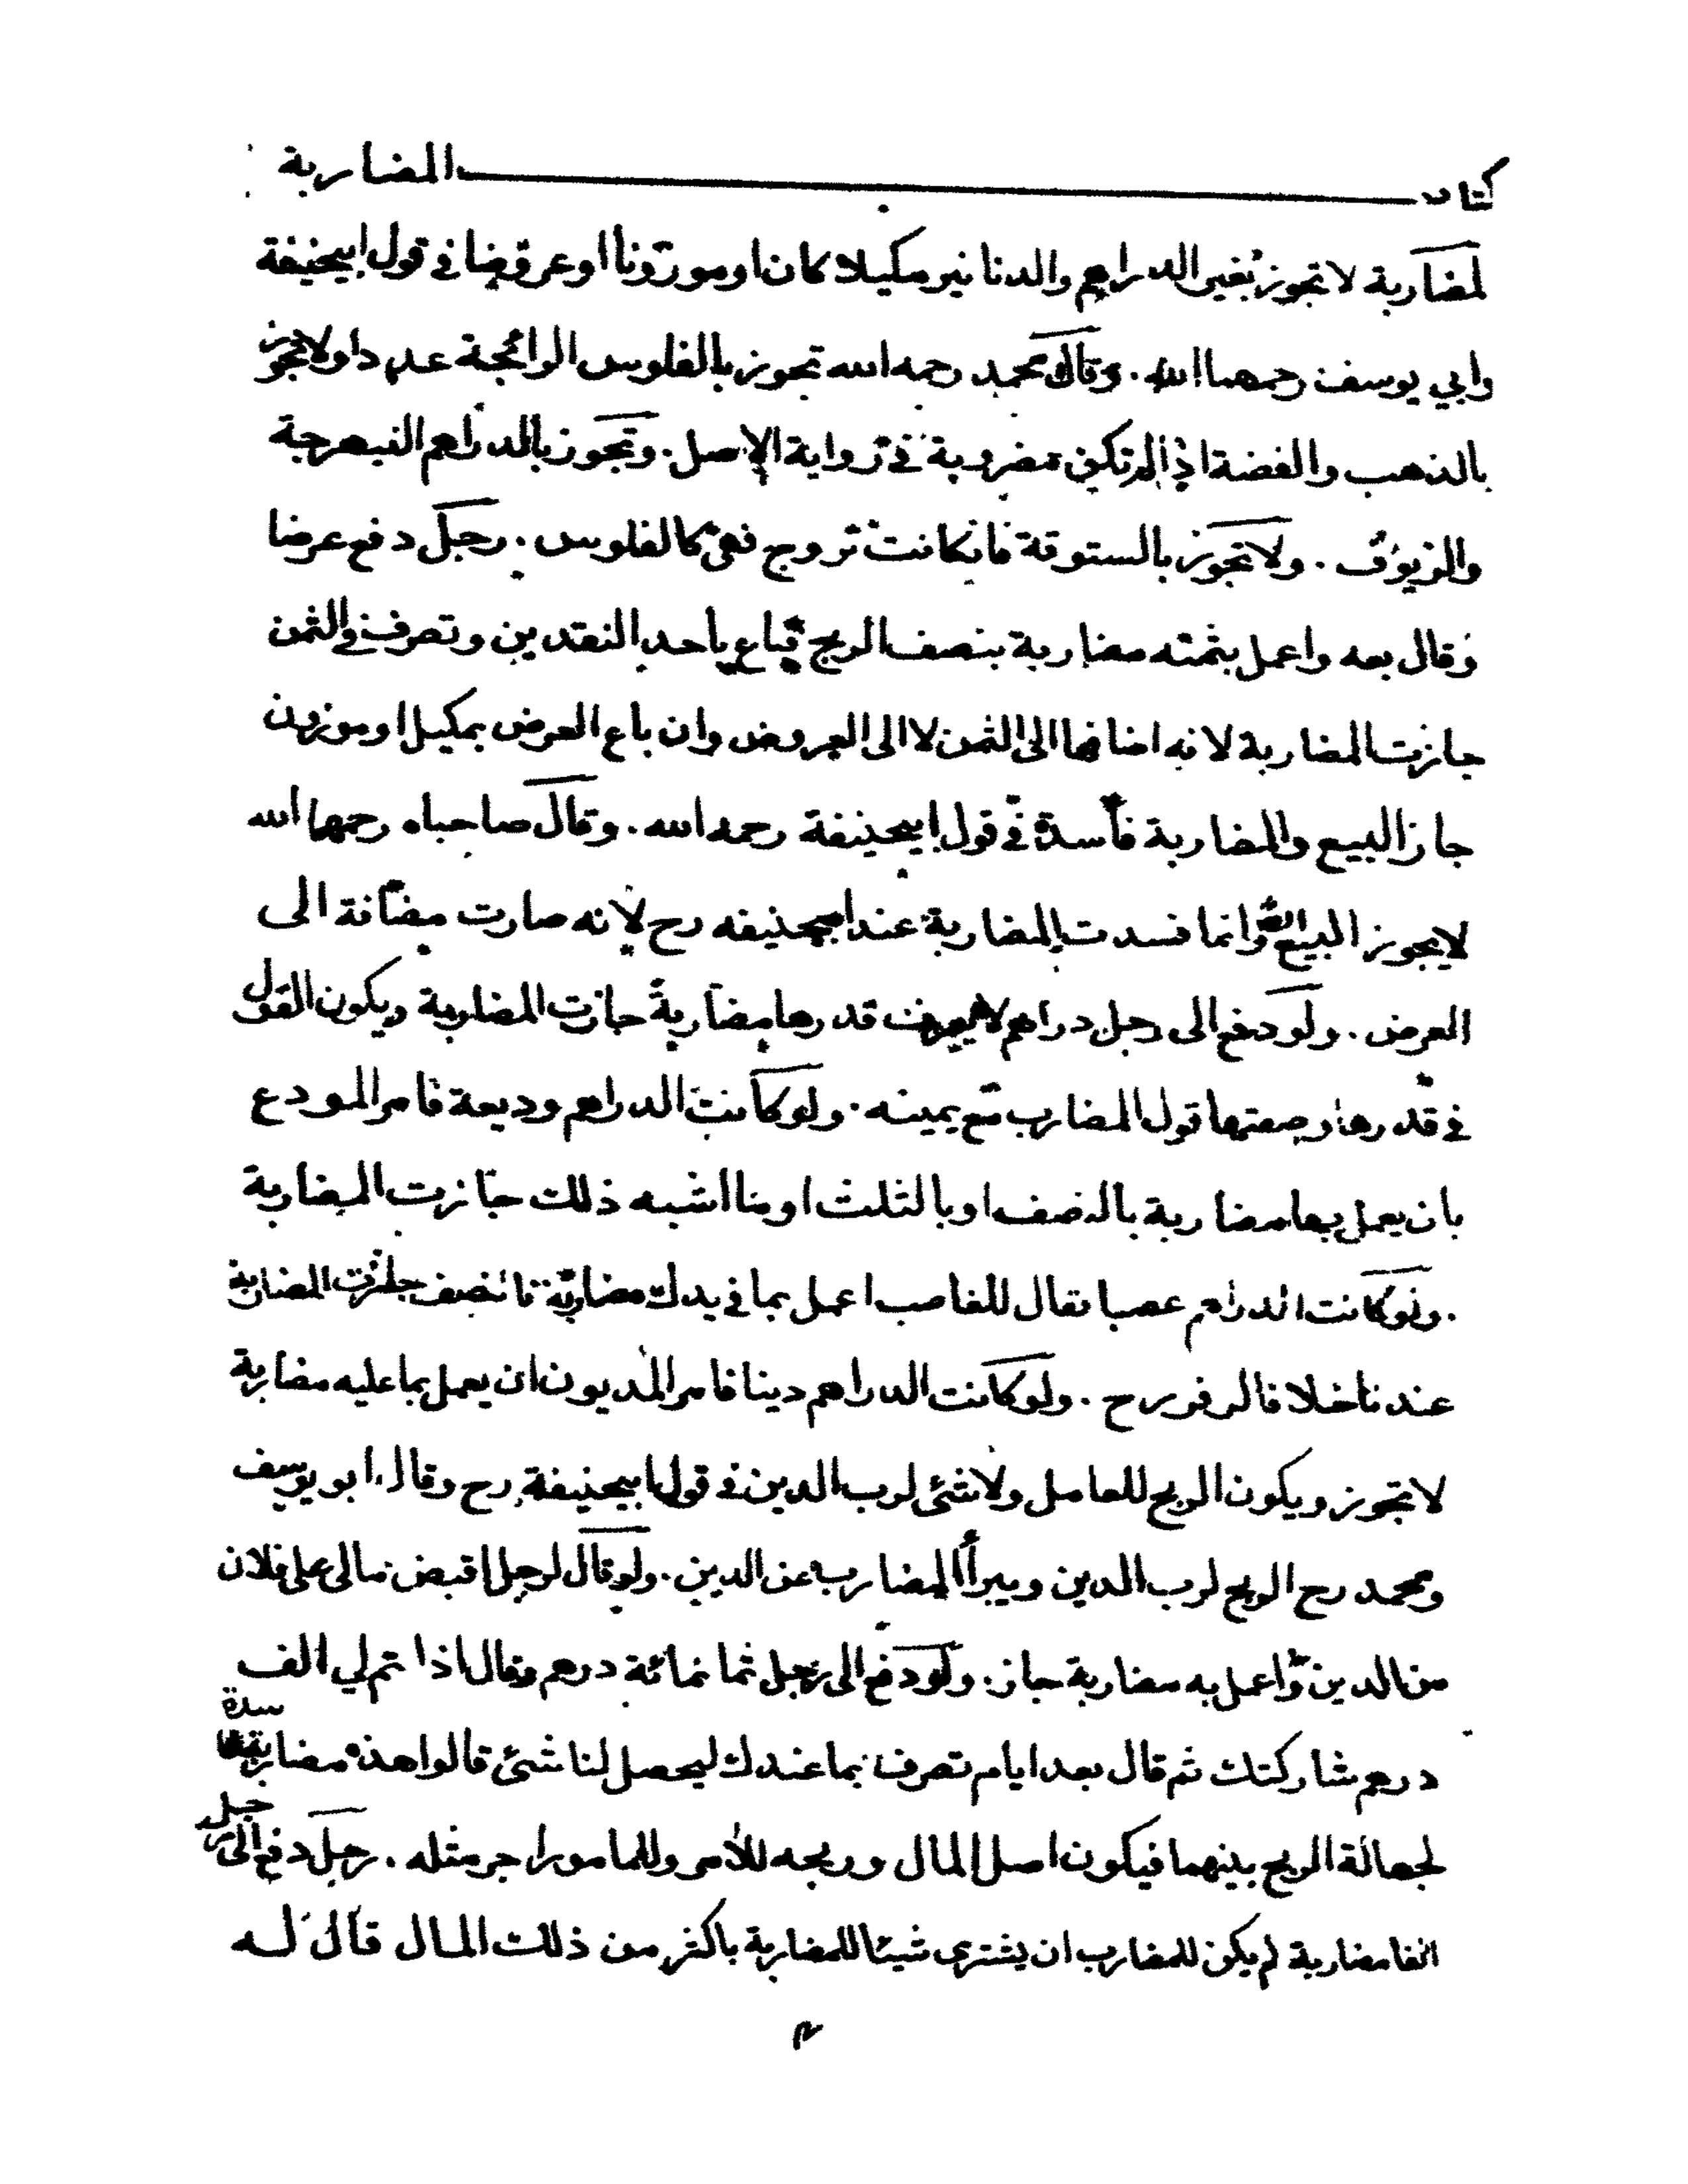 كتاب المضاربة
لمضاربة لا تجوز بغير الدراهم والدنانير مكيلا كان او موزونا او عروضا في قول ابيحنيفة
وابي يوسف رحمهما الله . وقال محمد رحمه الله تجوز بالفلوس الرائجة عددا ولا تجوز
بالذهب والفضة اذا لم تكن مضروبة في رواية الاصل . وتجوز بالدراهم النبهرجة
والزيوف . ولا تجوز بالستوقة فانكانت تروج فهي كالفلوس . رجل دفع عرضا
وقال بعه واعمل بثمنه مضاربة بنصف الربح فباع باحد النقدين وتصرف في الثمن
جازت المضاربة لانه اضافها الى الثمن لا الى العروض وان باع العرض بمكيل او موزون
جاز البيع والمضاربة فاسدة في قول ابيحنيفة رحمه الله . وقال صاحباه رحمهما الله
لا يجوز البيع وانما فسدت المضاربة عند ابيحنيفه رح لانه صارت مضافة الى
العرض . ولو دفع الى رجل دراهم لا يعرف قدرها مضاربة جازت المضاربة ويكون القول
في قدرها وصفتها قول المضارب مع يمينه . ولو كانت الدراهم وديعة فامر المودع
بان يعمل بها مضاربة بالنصف او بالثلث او ما اشبه ذلك جازت المضاربة
. ولو كانت الدراهم غصبا فقال للغاصب اعمل بما في يدك مضاربة بالنصف جازت المضاربة
عندنا خلافا لزفر رح . ولو كانت الدراهم دينا فامر المديون ان يعمل بما عليه مضاربة
لا تجوز ويكون الربح للعامل ولا شئ لرب الدين في قول ابيحنيفة رح وقال ابو يوسف
ومحمد رح الربح لرب الدين ويبرأ المضارب عن الدين . ولو قال لرجل اقبض مالي على فلان
من الدين واعمل به مضاربة جاز . ولو دفع الى رجل ثمانمائة درهم وقال اذا تم لي الف
درهم شاركتك ثم قال بعد ايام تصرف بما عندك ليحصل لنا شئ قالوا هذه مضاربة فاسدة
لجهالة الربح بينهما فيكون اصل المال وربحه للآمر وللمامور اجر مثله . رجل دفع الى رجل
الفا مضاربة لم يكن للمضارب ان يشترى شيئا للمضاربة باكثر من ذلك المال قال له